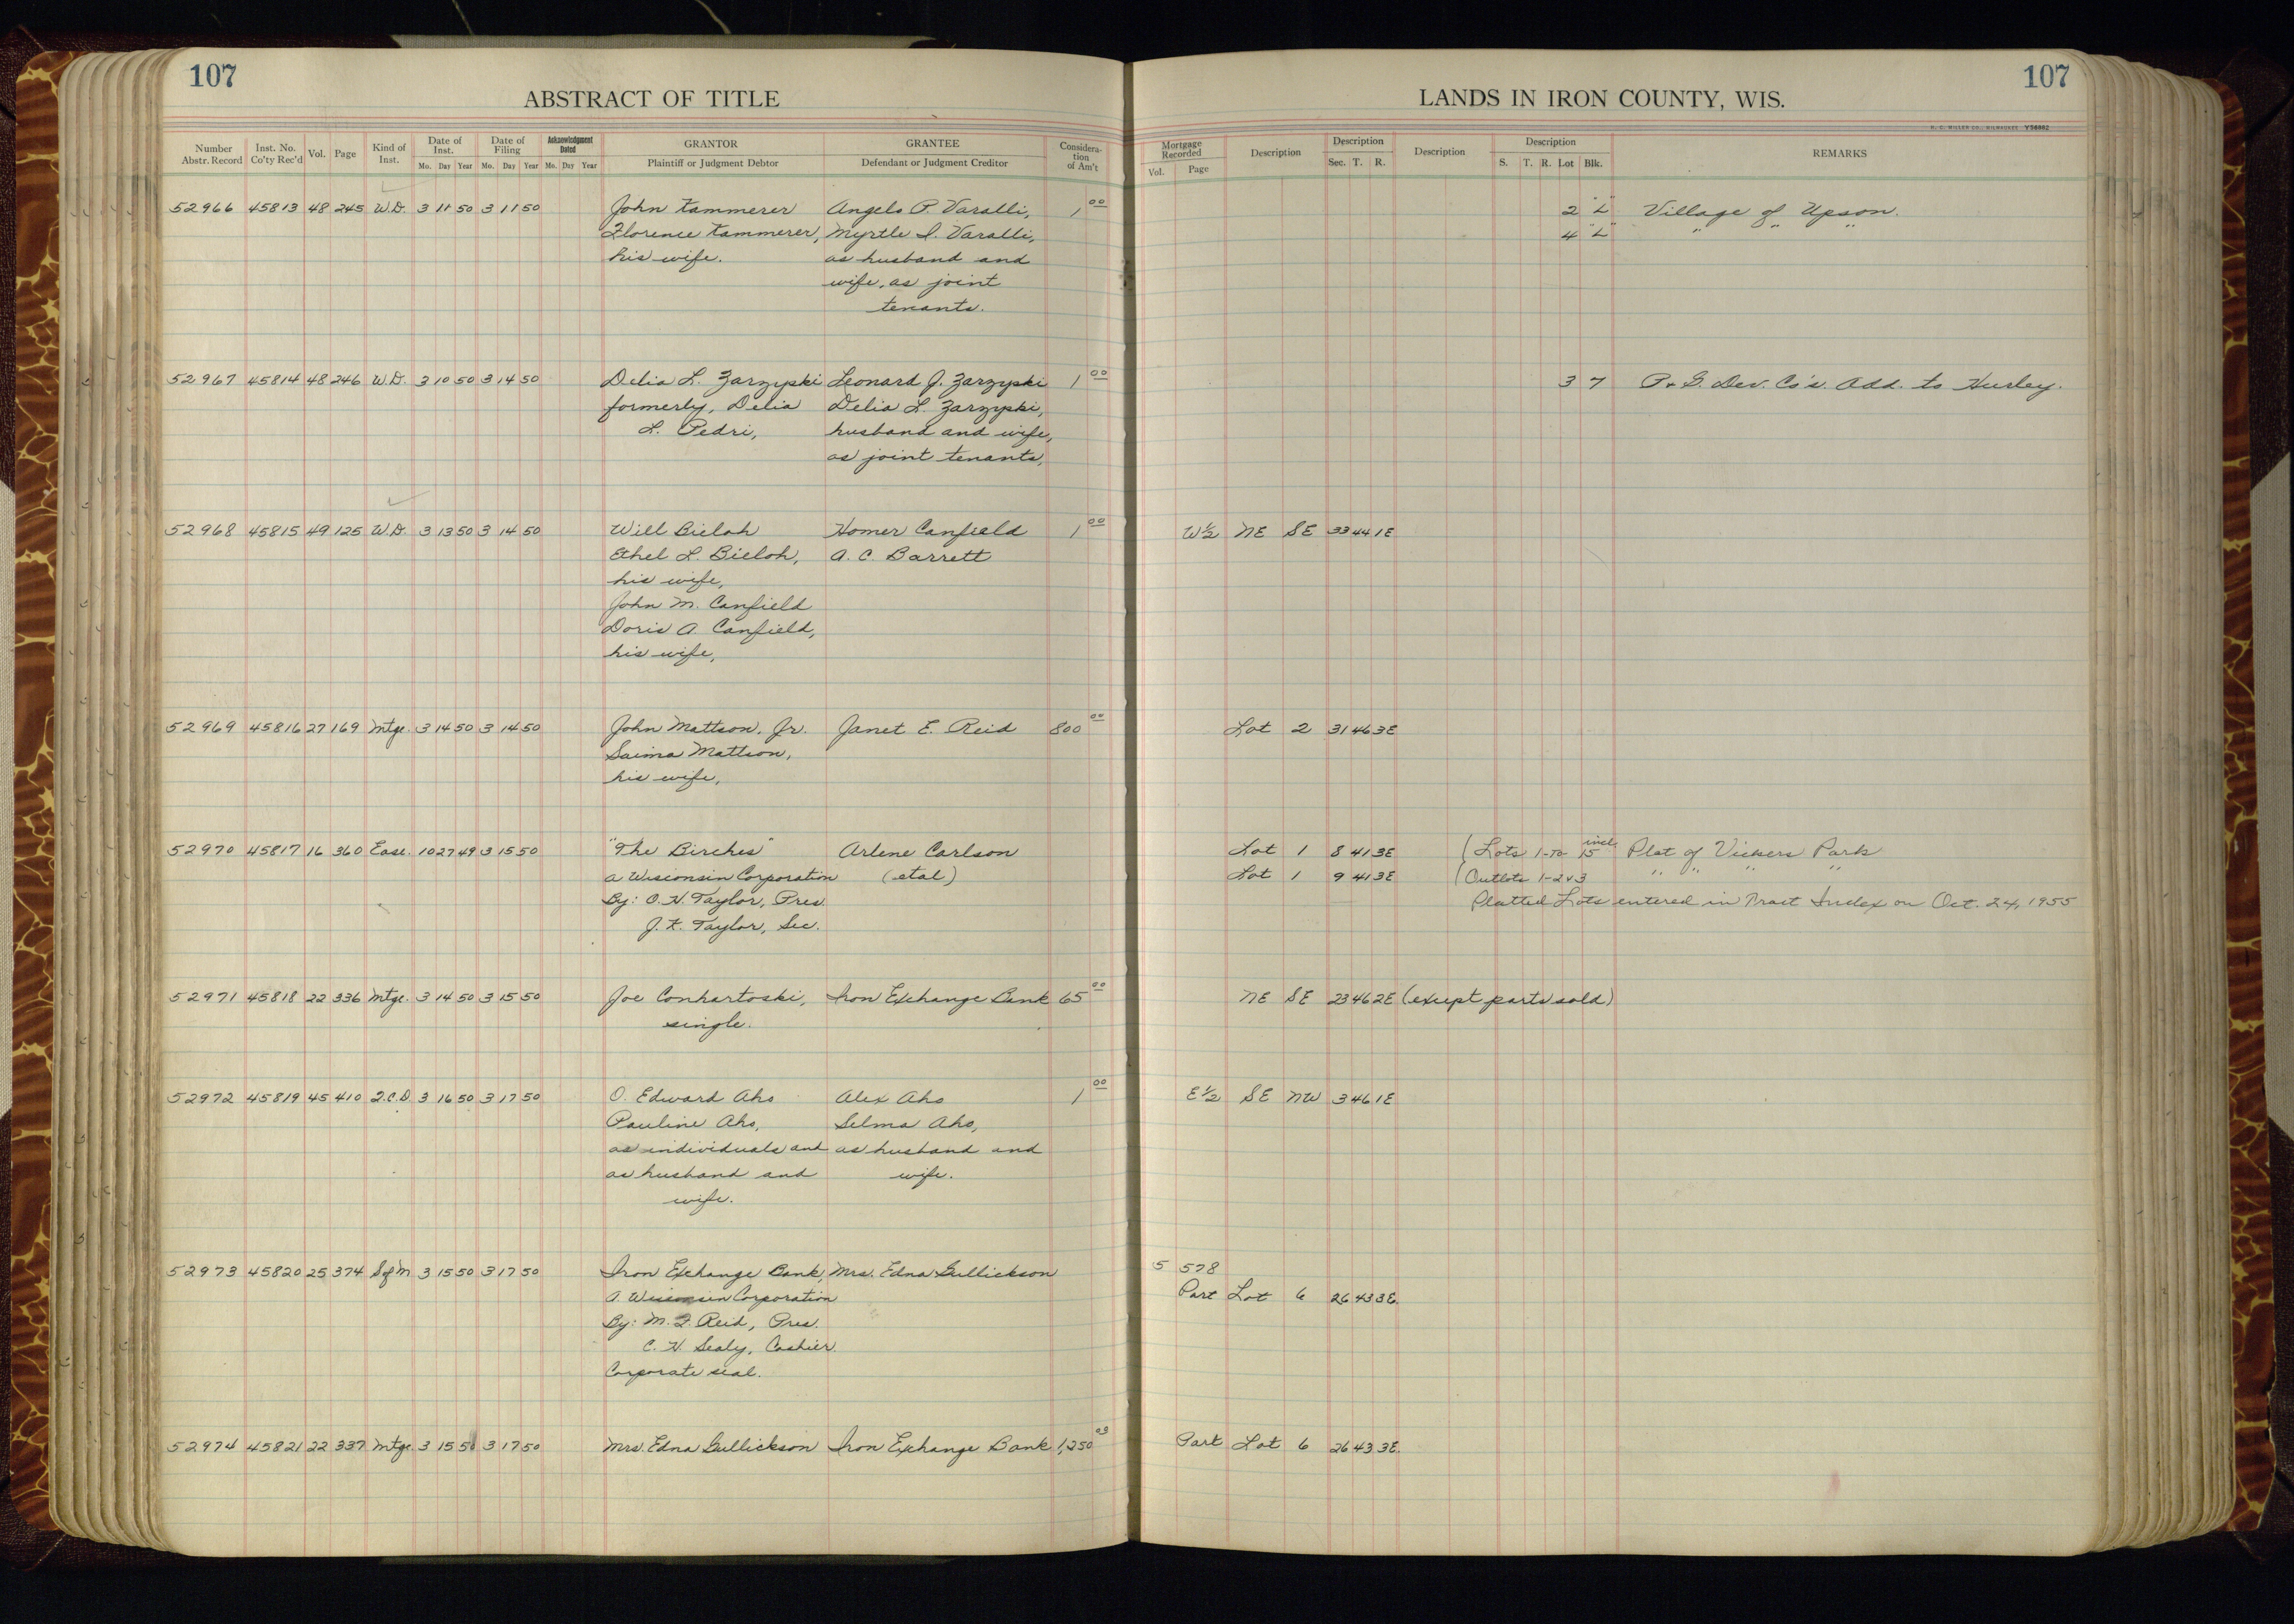 107
ABSTRACT OF TITLE
Number Abstr. Record Inst. No. Co'ty Rec'd Vol. Page Kind of Inst. Date of Inst. Mo. Day Year Date of Filing Mo. Day Year Acknowledgment Dated Mo. Day Year GRANTOR Plaintiff or Judgment Debtor GRANTEE Defendant or Judgment Creditor Considera-tion of Am't
107
LANDS IN IRON COUNTY, WIS.
H. C. MILLER CO., MILWAUKEE Y56882
Mortgage Recorded Vol. Page Description Description Sec. T. R. Description Description S. T. R. Lot Blk. REMARKS
52966 45813 48 245 W.D. 3 11 50 3 11 50 John Kammerer Angelo P. Varalli, 1 00 2 "L" Village of Upson.
Florence Kammerer, Myrtle I. Varalli, 4 "L" " " "
his wife. as husband and
wife, as joint
tenants.
52967 45814 48 246 W.D. 3 10 50 3 14 50 Delia L. Zarzypski Leonard J. Zarzypski 1 00 3 7 P & G. Dev. Co's. Add. to Hurley.
formerly, Delia Delia L. Zarzypski,
L. Pedri, husband and wife,
as joint tenants,
52968 45815 49 125 W.D. 3 13 50 3 14 50 Will Bieloh Homer Canfield 1 00 W½ NE SE 33 44 1E
Ethel L. Bieloh, A. C. Barrett
his wife,
John M. Canfield
Doris A. Canfield,
his wife,
52969 45816 27 169 Mtge. 3 14 50 3 14 50 John Mattson, Jr. Janet E. Reid 800 00 Lot 2 31 46 3E
Saima Mattson,
his wife,
52970 45817 16 360 Ease. 10 27 49 3 15 50 "The Birches" Arlene Carlson Lot 1 8 41 3E (Lots 1-to 15 incl. Plat of Vickers Park
a Wisconsin Corporation (etal) Lot 1 9 41 3E (Outlots 1-2&3 " " " "
By: O. H. Taylor, Pres. Platted Lots entered in Tract Index on Oct. 24, 1955
J. K. Taylor, Sec.
52971 45818 22 336 Mtge. 3 14 50 3 15 50 Joe Conhartoski, Iron Exchange Bank 65 00 NE SE 23 46 2E (except parts sold)
single.
52972 45819 45 410 Q.C.D. 3 16 50 3 17 50 O. Edward Aho Alex Aho 1 00 E½ SE NW 3 46 1E
Pauline Aho, Selma Aho,
as individuals and as husband and
as husband and wife.
wife.
52973 45820 25 374 S of M 3 15 50 3 17 50 Iron Exchange Bank, Mrs. Edna Gullickson 5 578
A. Wisconsin Corporation Part Lot 6 26 43 3E.
By: M. J. Reid, Pres.
C. H. Sealy, Cashier.
Corporate seal.
52974 45821 22 337 Mtge 3 15 50 3 17 50 Mrs. Edna Gullickson Iron Exchange Bank 1,250 03 Part Lot 6 26 43 3E.